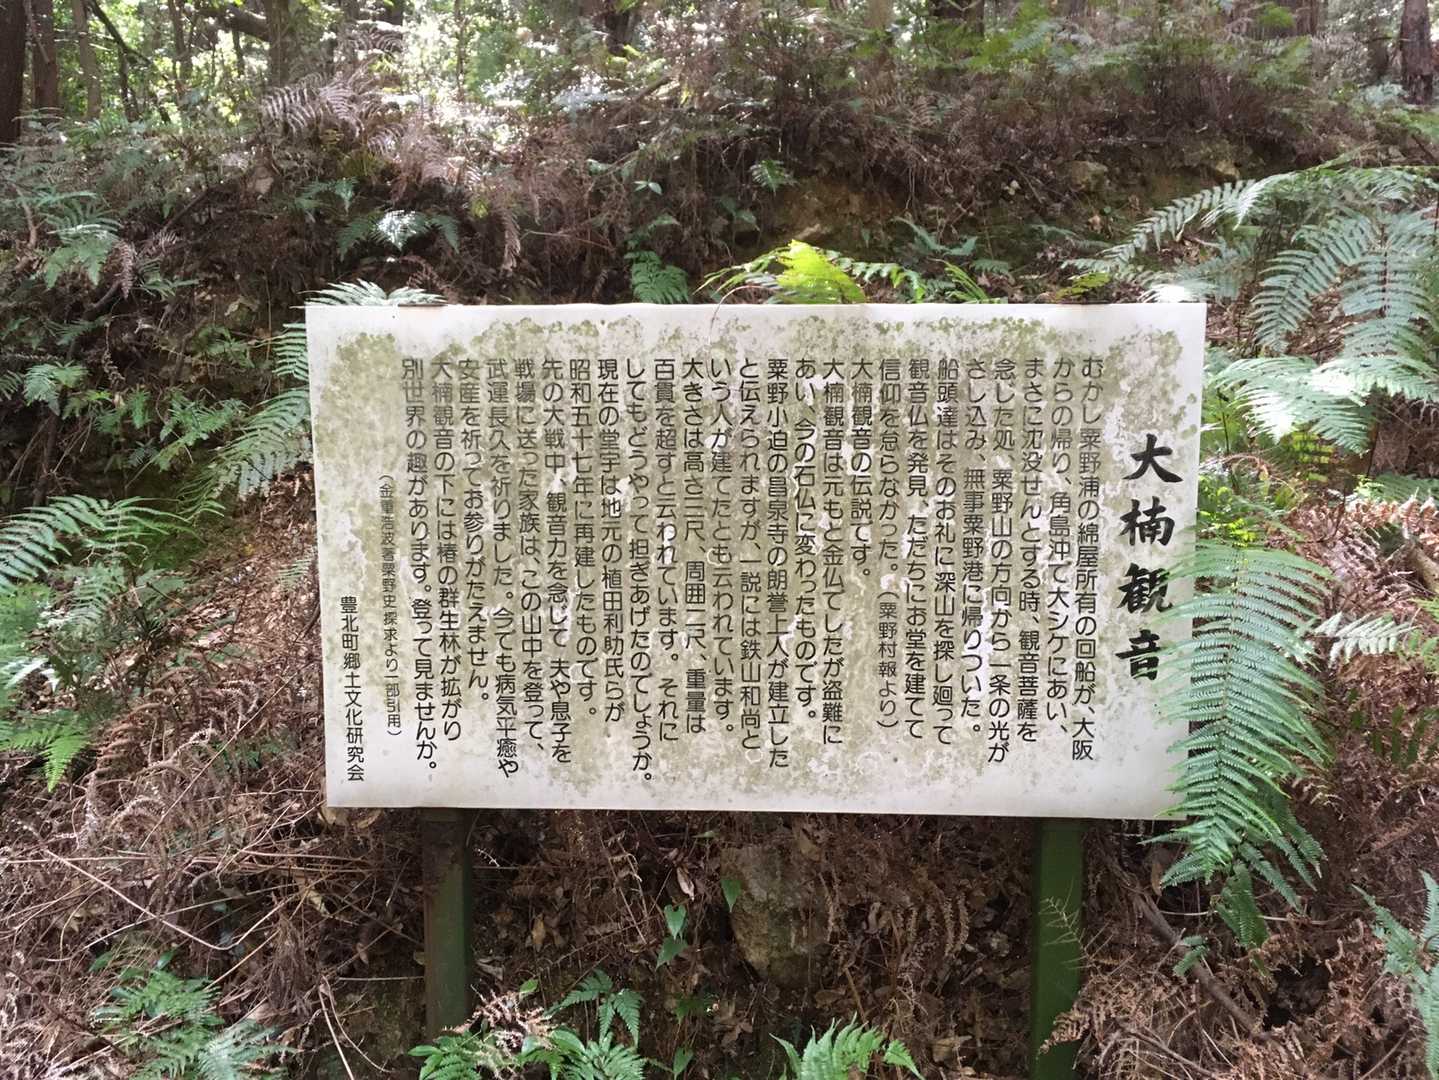 大楠観音
むかし粟野浦の綿屋所有の回船が、大阪
からの帰り、角島沖で大シケにあい、
まさに沈没せんとする時、観音菩薩を
念じた処、粟野山の方向から一条の光が
さし込み、無事粟野港に帰りついた。
船頭達はそのお礼に深山を探し廻って
観音仏を発見、ただちにお堂を建てて
信仰を怠らなかった。(粟野村報より)
大楠観音の伝説です。
大楠観音は元もと金仏でしたが盗難に
あい、今の石仏に変わったものです。
粟野小迫の昌泉寺の朗誉上人が建立した
と伝えられますが、一説には鉄山和尚と
いう人が建てたとも云われています。
大きさは高さ三尺、周囲二尺、重量は
百貫を超すと云われています。それに
してもどうやって担ぎあげたのでしょうか。
現在の堂宇は地元の植田利助氏らが
昭和五十七年に再建したものです。
先の大戦中、観音力を念じて夫や息子を
戦場に送った家族は、この山中を登って、
武運長久を祈りました。今でも病気平癒や
安産を祈ってお参りがたえません。
大楠観音の下には椿の群生林が拡がり
別世界の趣があります。登って見ませんか。
(金重浩波著粟野史探求より一部引用)
豊北町郷土文化研究会